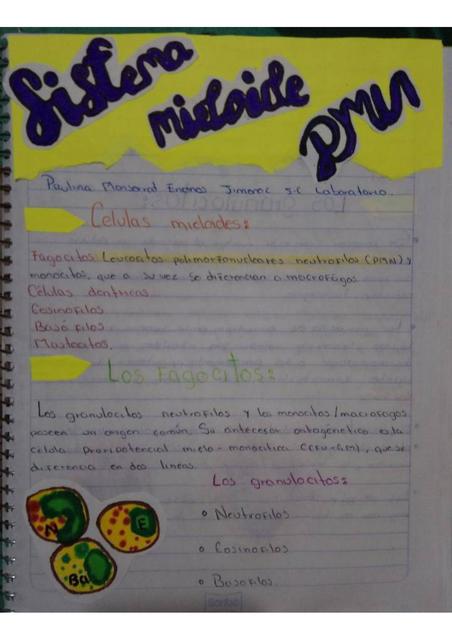 Sistema
mieloide
PMN
Paulina Monserrat Encinos Jimenez 5.C Laboratorio.
Celulas mieloides:
Fagocitos Leucocitos polimorfonucleares neutrofilos (PMN) y
monocitos, que a su vez se diferencian a macrofagos
Células dentricas
Eosinofilos
Basó filos
Mastocitos.
Los fagocitos:
Los granulocitos neutrofilos y los monocitos/macrofagos
poseen un origen común. Su antecesor ontogénetico es la
célula pluripotencial mielo-monocitica (CFU-GM), que se
diferencia en dos lineas.
Los granulocitos:
Neutrofilos
Eosinofilos
Basofilos
N
E
Ba
Scribe